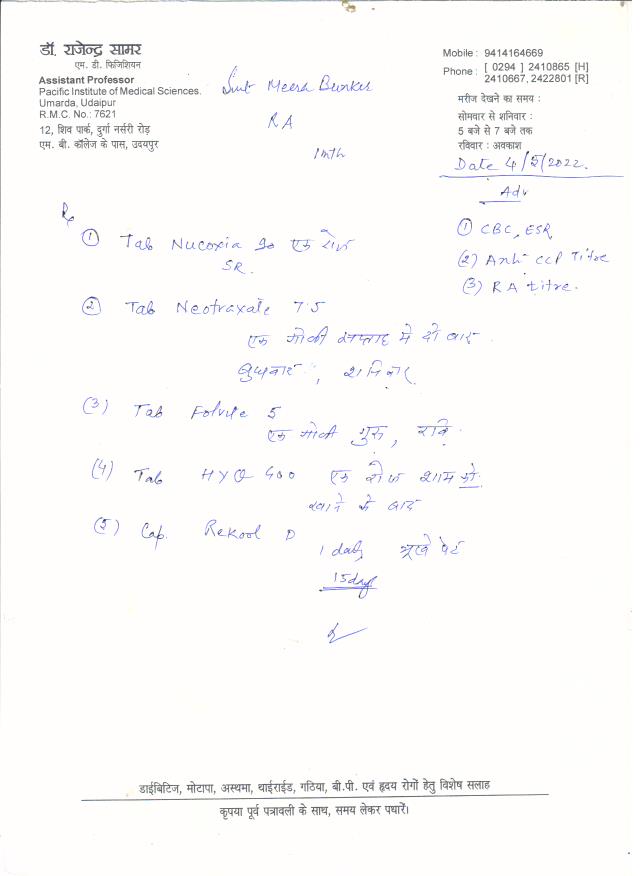 डॉ. राजेन्द्र सामर
एम. डी. फिजिशियन
Assistant Professor
Pacific Institute of Medical Sciences.
Umarda, Udaipur
R.M.C. No.: 7621
12, शिव पार्क, दुर्गा नर्सरी रोड़
एम. बी. कॉलेज के पास, उदयपुर
Mobile : 9414164669
Phone : [ 0294 ] 2410865 [H]
2410667, 2422801 [R]
मरीज देखने का समय :
सोमवार से शनिवार :
5 बजे से 7 बजे तक
रविवार : अवकाश
Date 4/5/2022.
Smt Meera Bunker
RA
1mth
Adv
① CBC, ESR
(2) Anti CCP Titre
(3) RA titre.
Rx
① Tab Nucoxia 90 एक रोज
SR.
② Tab Neotraxate 7.5
एक गोली सप्ताह मे दो बार
बुधवार, शनिवार
(3) Tab Folvite 5
एक गोली गुरु, रवि
(4) Tab HYQ 400 एक रोज शाम को
खाने के बाद
(5) Cap. Rekool D 1 daily भूखे पेट
15days
डाईबिटिज, मोटापा, अस्थमा, थाईराईड, गठिया, बी.पी. एवं हृदय रोगों हेतु विशेष सलाह
कृपया पूर्व पत्रावली के साथ, समय लेकर पधारें।